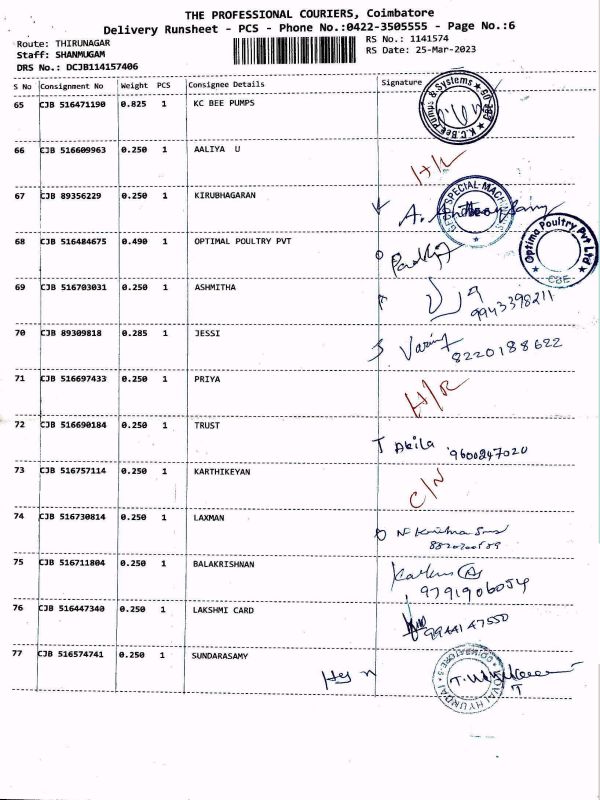 THE PROFESSIONAL COURIERS, Coimbatore
Delivery Runsheet - PCS - Phone No.:0422-3505555 - Page No.:6
Route: THIRUNAGAR RS No.: 1141574
Staff: SHANMUGAM RS Date: 25-Mar-2023
DRS No.: DCJB114157406
S No Consignment No Weight PCS Consignee Details Signature
65 CJB 516471190 0.825 1 KC BEE PUMPS
66 CJB 516609963 0.250 1 AALIYA U
67 CJB 89356229 0.250 1 KIRUBHAGARAN
68 CJB 516484675 0.490 1 OPTIMAL POULTRY PVT
Optima Poultry Pvt Ltd
CBE
69 CJB 516703031 0.250 1 ASHMITHA
9943398211
70 CJB 89309818 0.285 1 JESSI
8220188622
71 CJB 516697433 0.250 1 PRIYA H/R
72 CJB 516690184 0.250 1 TRUST
T Akila 9600847020
73 CJB 516757114 0.250 1 KARTHIKEYAN C/N
74 CJB 516730814 0.250 1 LAXMAN
75 CJB 516711804 0.250 1 BALAKRISHNAN
9791906054
76 CJB 516447340 0.250 1 LAKSHMI CARD
9944147550
77 CJB 516574741 0.250 1 SUNDARASAMY